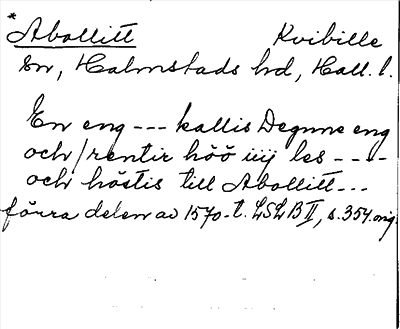 * Abollitt Kvibille
sn, Halmstads hd, Hall. l.
En eng --- kallis Degnne eng
och /rentir höö iiij les ----
och höstis till Abollitt---
förra delen av 1570-t. LSLB II, s. 354. orig.